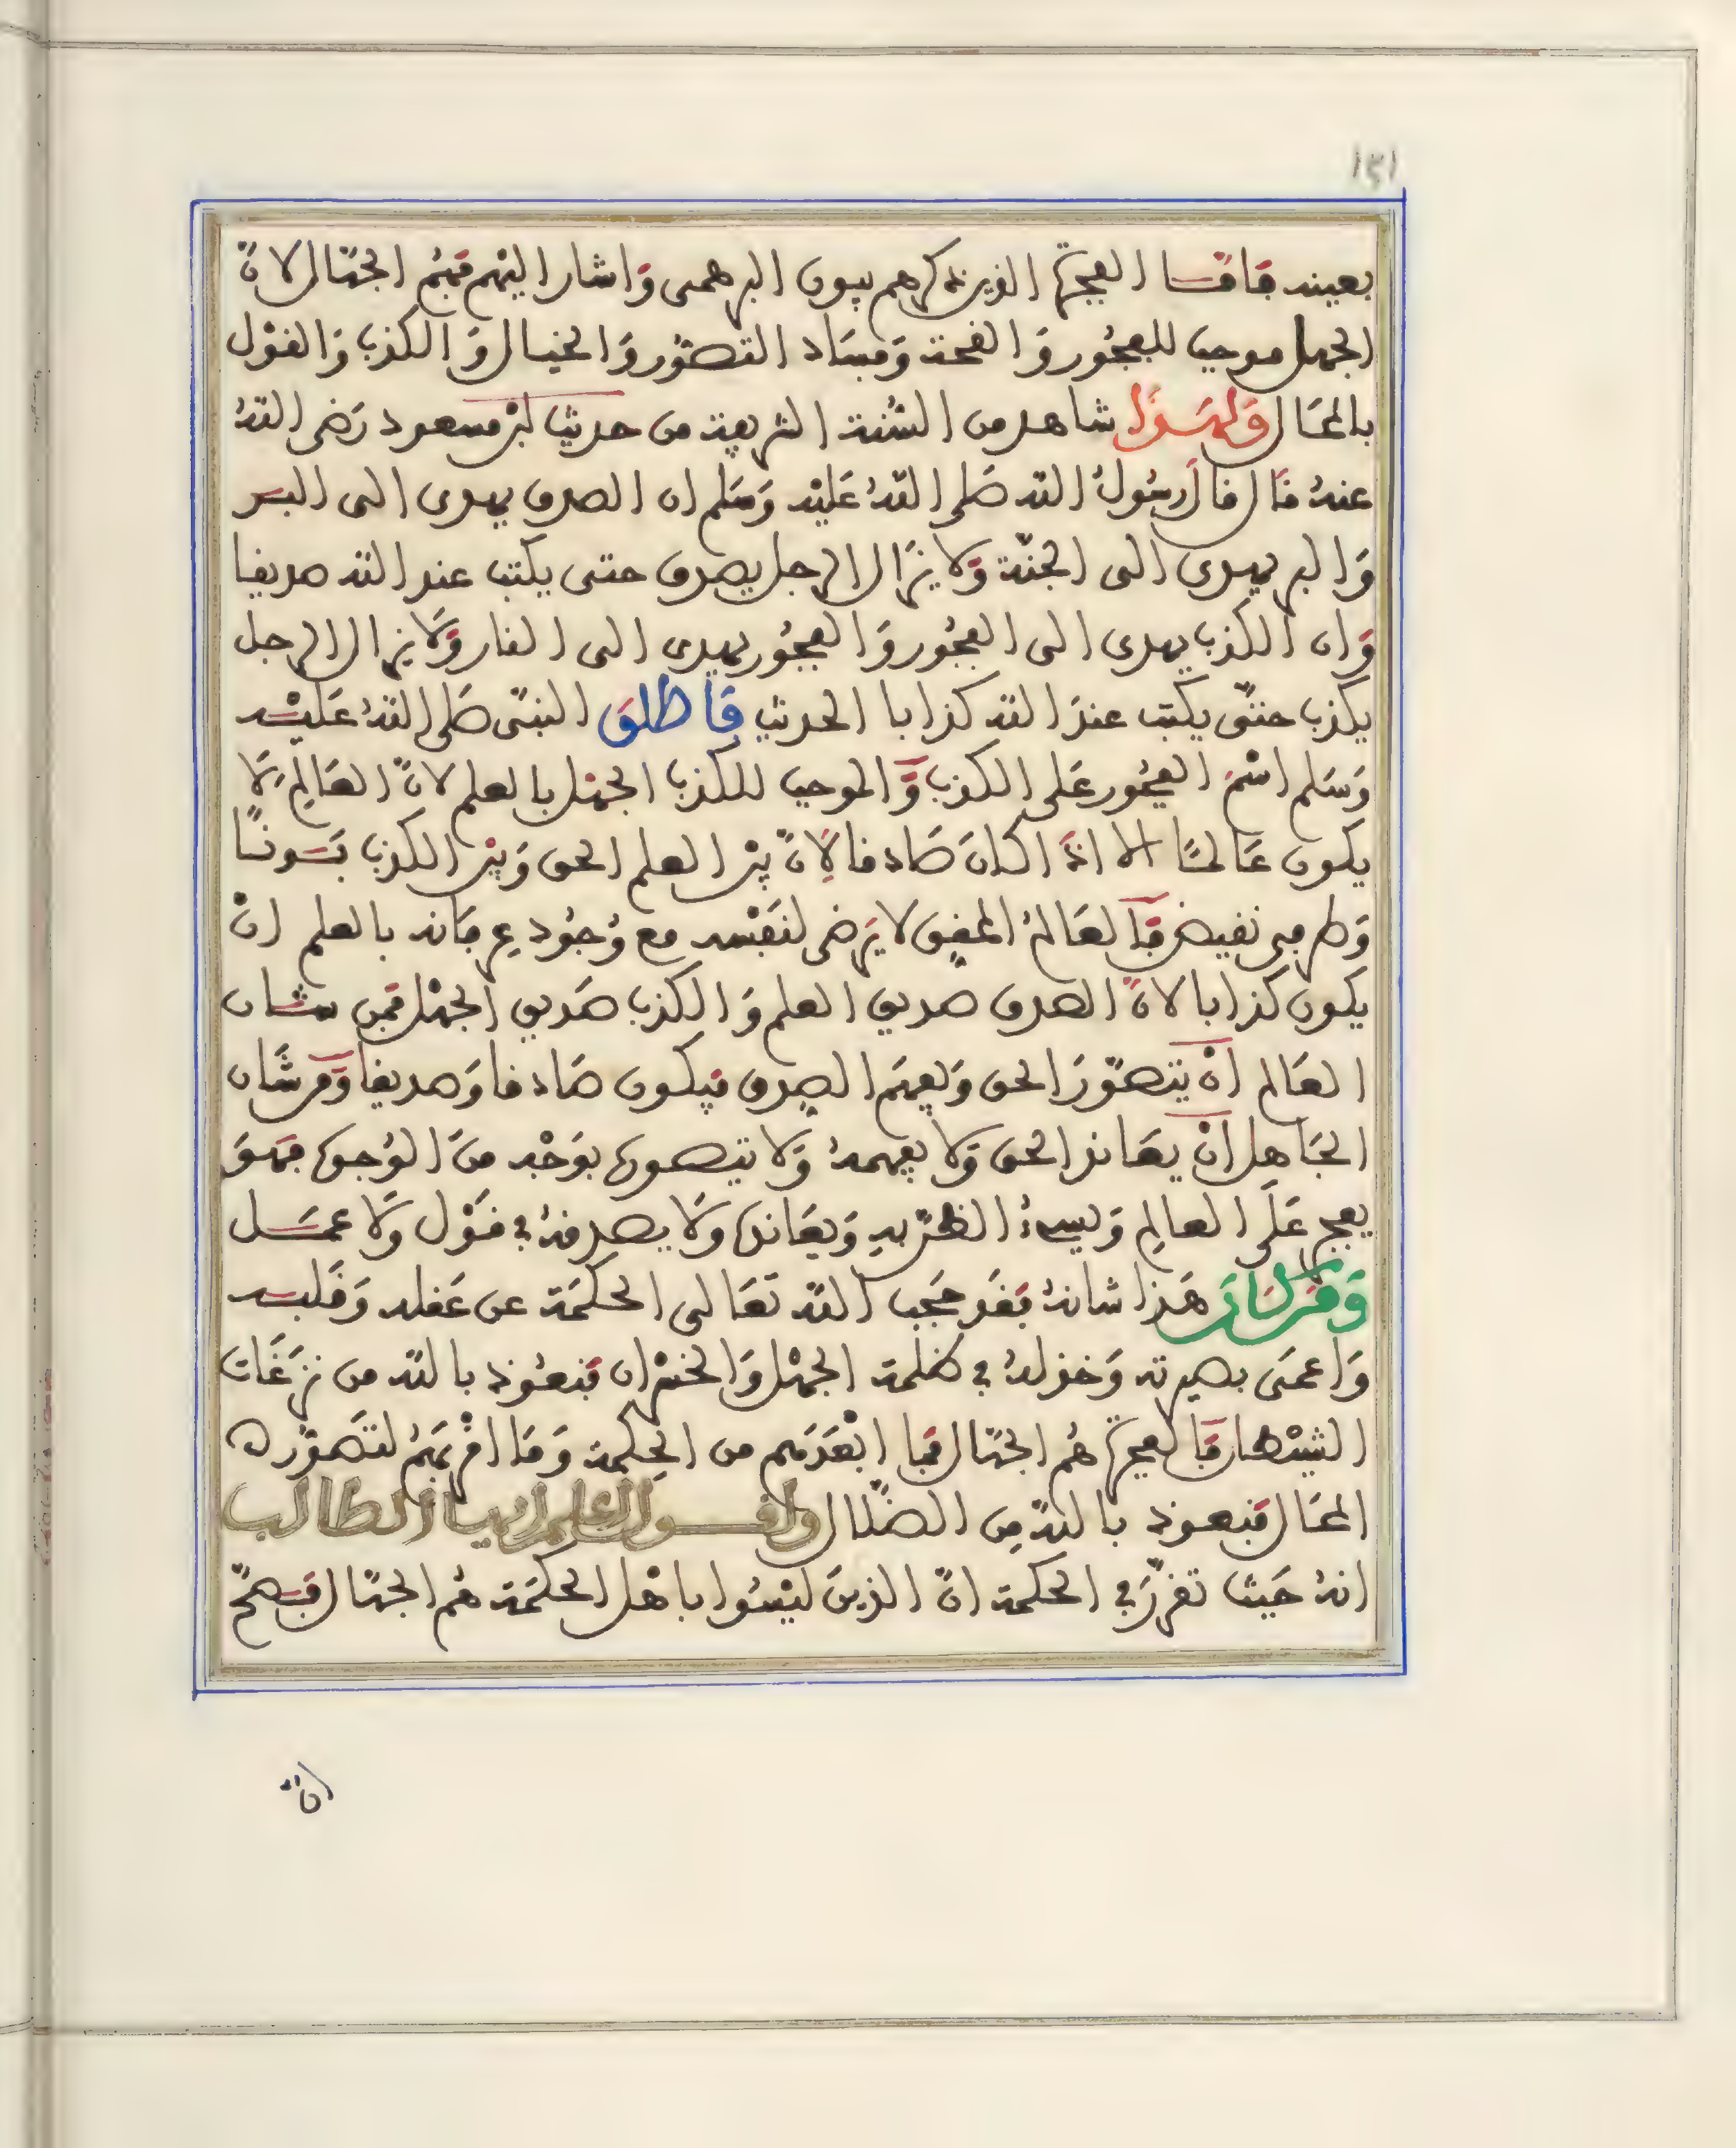 ١٤١
بعينه فاما الفجرة الذين ذكرهم بيون البرهمى وَاشار اليهم فهُم الجهّال لانّ
الجهل موجب للفجُور وَالقحة وَفسَاد التصوّر وَالخيال وَالكذب وَالقوْل
بالمحَال وَلهَذا شاهد من السُّنة الشريفة من حديث ابن مسعود رَضى اللهُ
عنهُ قال قال رسُولُ الله صَلى اللهُ عَليْه وَسَلم ان الصدق يهدى الى البر
وَالبر يهدى الى الجنّة وَلا يزَال الرجل يصدق حتى يكتب عند الله صديقا
وَان الكذب يهدى الى الفجُور وَالفجُور يهدى الى النار وَلَا يزال الرجل
يكذب حتّى يكتب عندَ الله كذابا الحديث فَاطلقَ النبىّ صَلى اللهُ عَليْه
وَسَلم اسْمَ الفجُور عَلى الكذب وَالموجب للكذب الجهْل بالعلم لانّ العَالِمَ لَا
يكون عَالمًا الا اذَا كانَ صَادقا لِانّ بيْن العلم الحق وَبيْن الكذب بَونًا
وَطرفى نقيض فَالعَالمُ المفيق لا يَرضى لنفسْه مع وُجُود عِرفانه بالعلم انْ
يكون كذابا لانّ الصدق صديق العلم وَالكذب صَديق الجهْل فمِن شان
العَالم انْ يتصوّرَ الحق وَيفهمَ الصِدق فيكون صَادقا وَصديقا وَمن شَان
الجَاهِل انْ يعَاند الحق وَلا يفهمهُ وَلا يتصوره بوَجْه منَ الوُجوه فهوَ
يفجر عَلَى العالِم وَيسىءُ الظنّ بهِ وَيعَانده وَلَا يصدقهُ فى قوْل وَلَا عمَل
وَمَن كانَ هَذا شانهُ فقد حَجب اللهُ تعَالى الحكمَة عن عَقله وَقلبه
وَاعمَى بصيرته وَخذلهُ فى ظلمة الجهْل وَالخسْران فنعُوذ بالله من نزغَات
الشيْطان فَالفجرة هُم الجهّال فمَا ابْعَدَهم من الحِكمة وَمَا اقْربَهُم لتَصوّر
المحَال فنعوذ باللهِ مِن الضلال وَاقول اعلم ايها الطالب
انهُ حَيث تقرّرَ فى الحكمة انّ الذينَ ليْسُوا باهْل الحكمَة هُم الجهّال فصحّ
انّ